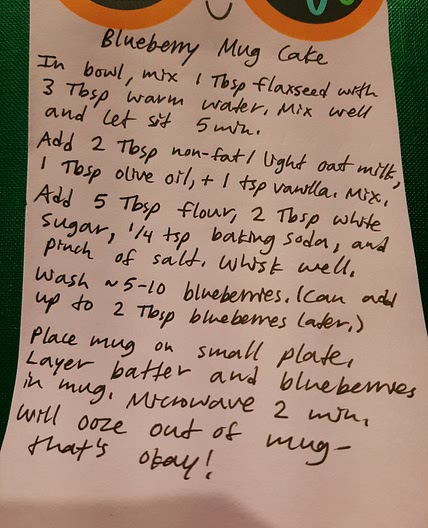 Blueberry Mug Cake
In bowl, mix 1 Tbsp flaxseed with
3 Tbsp warm water. Mix well
and let sit 5 min.
Add 2 Tbsp non-fat/light oat milk,
1 Tbsp olive oil, + 1 tsp vanilla. Mix.
Add 5 Tbsp flour, 2 Tbsp white
sugar, 1/4 tsp baking soda, and
pinch of salt. Whisk well.
Wash ~5-10 blueberries. (Can add
up to 2 Tbsp blueberries later.)
Place mug on small plate.
Layer batter and blueberries
in mug. Microwave 2 min.
Will ooze out of mug-
that's okay!